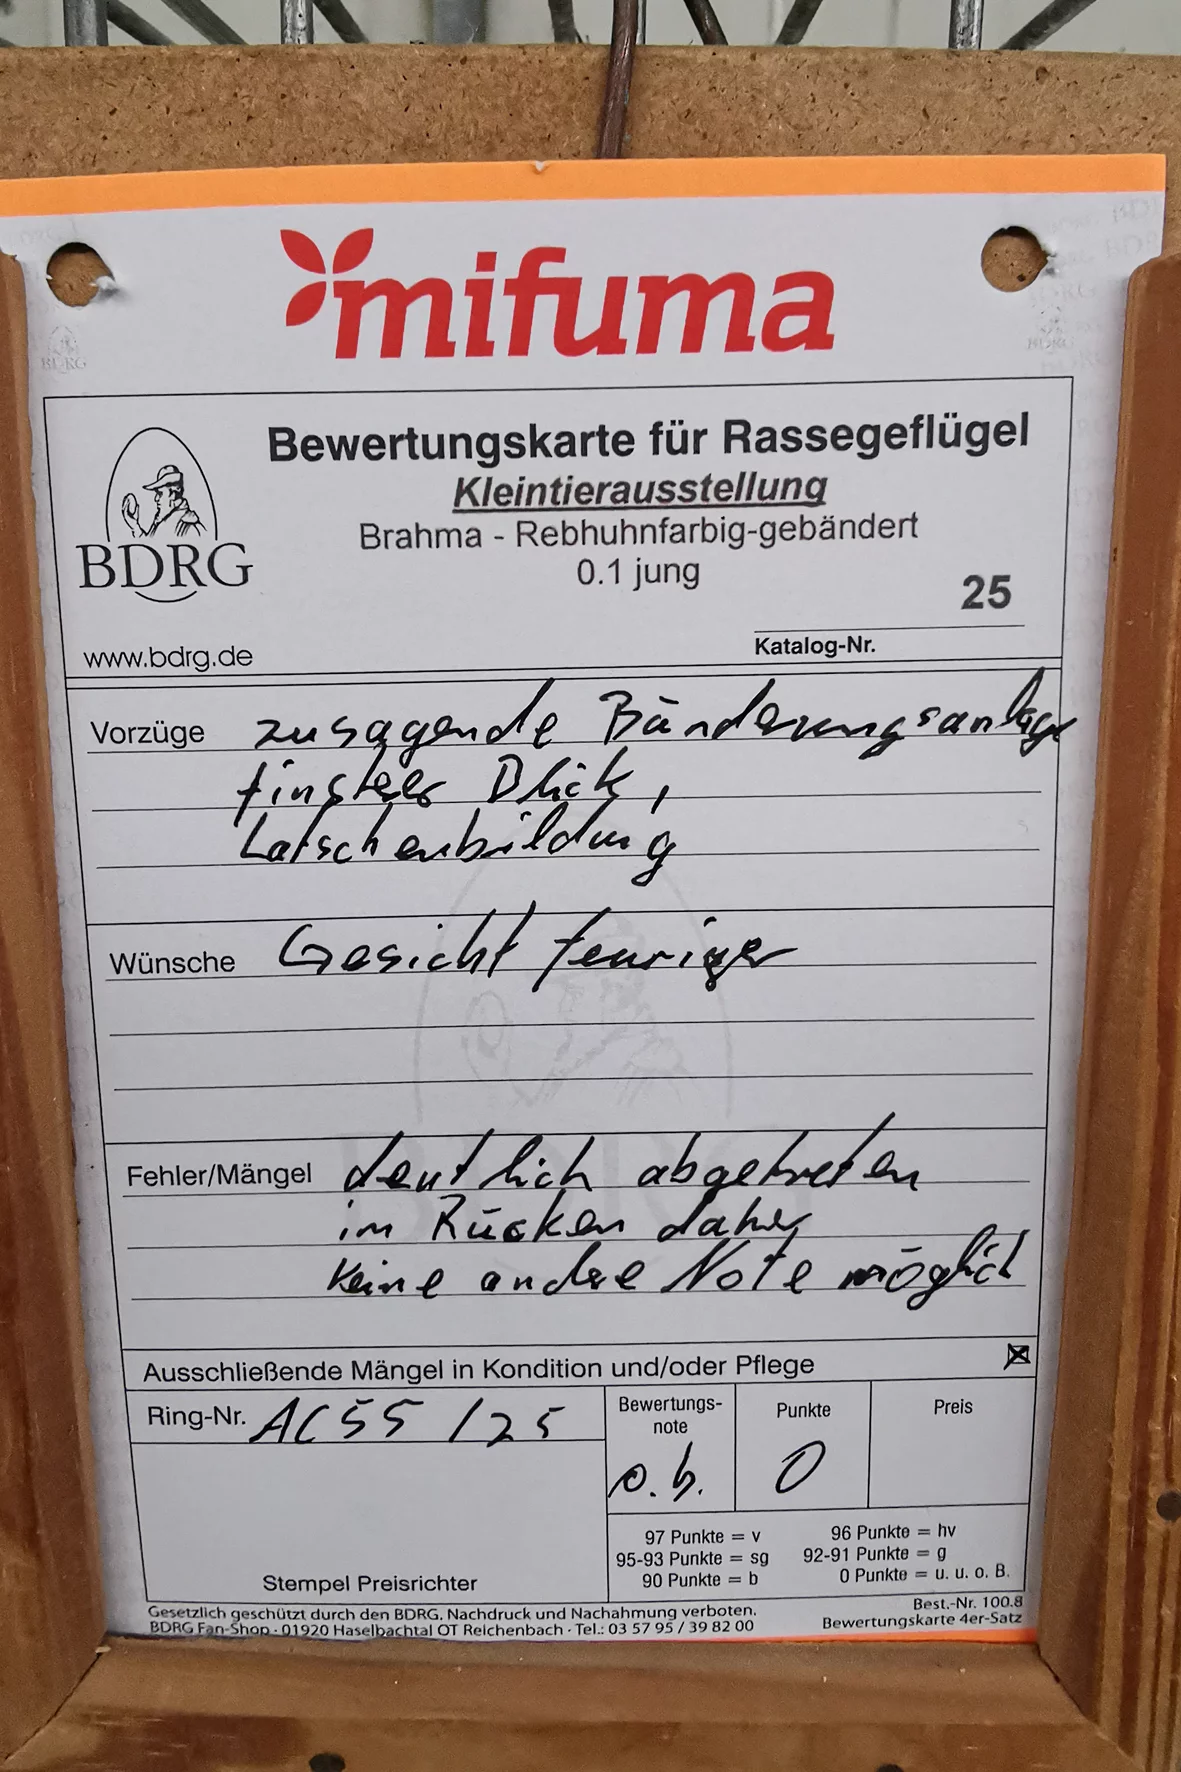 mifuma
Bewertungskarte für Rassegeflügel
Kleintierausstellung
Brahma - Rebhuhnfarbig-gebändert
0.1 jung
25
BDRG
www.bdrg.de
Katalog-Nr.
Vorzüge zusagende Bänderungsanlage
finsterer Blick,
Latschenbildung
Wünsche Gesicht feuriger
Fehler/Mängel deutlich abgetreten
im Rücken daher
keine andere Note möglich
Ausschließende Mängel in Kondition und/oder Pflege
Ring-Nr. AC55 /25
Bewertungs-
note
o.b.
Punkte
0
Preis
97 Punkte = v 96 Punkte = hv
95-93 Punkte = sg 92-91 Punkte = g
90 Punkte = b 0 Punkte = u. u. o. B.
Stempel Preisrichter
Gesetzlich geschützt durch den BDRG. Nachdruck und Nachahmung verboten.
BDRG Fan-Shop · 01920 Haselbachtal OT Reichenbach · Tel.: 03 57 95 / 39 82 00
Best.-Nr. 100.8
Bewertungskarte 4er-Satz